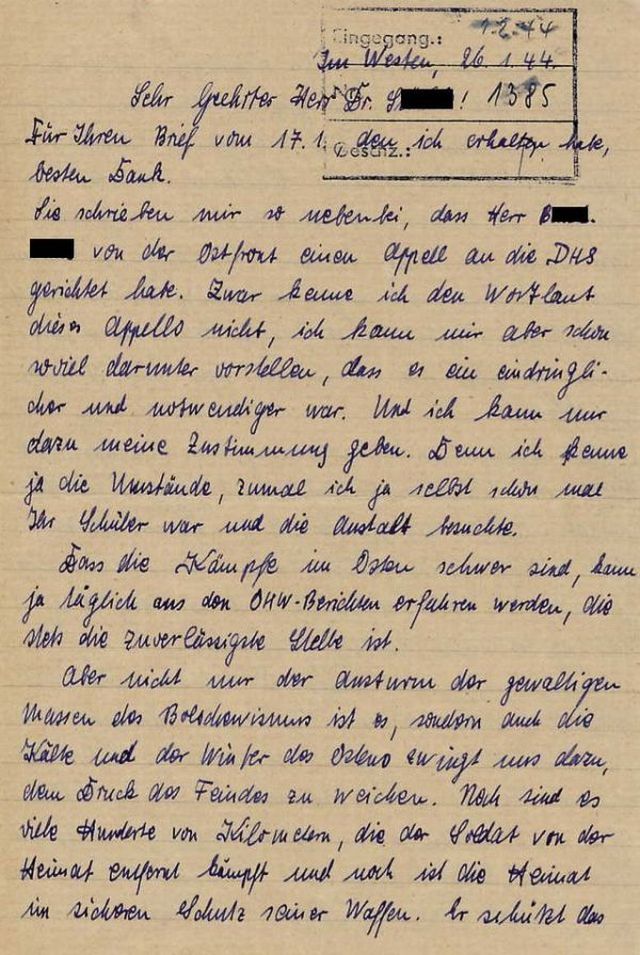 Eingegang.: 1.2.44
Im Westen, 26.1.44.
Nr. 1385
Sehr Geehrter Herr Dr. S !
Für Ihren Brief vom 17.1. den ich erhalten habe,
Geschz.:
besten Dank.
Sie schrieben mir so nebenbei, dass Herr B .
von der Ostfront einen Appell an die DHS
gerichtet habe. Zwar kenne ich den Wortlaut
dieses Appells nicht, ich kann mir aber schon
soviel darunter vorstellen, dass es ein eindringli-
cher und notwendiger war. Und ich kann nur
dazu meine Zustimmung geben. Denn ich kenne
ja die Umstände, zumal ich ja selbst schon mal
Ihr Schüler war und die Anstalt besuchte.
Dass die Kämpfe im Osten schwer sind, kann
ja täglich aus den OKW-Berichten erfahren werden, die
stets die zuverlässigste Stelle ist.
Aber nicht nur der Ansturm der gewaltigen
Massen des Bolschewismus ist es, sondern auch die
Kälte und der Winter des Ostens zwingt uns dazu,
dem Druck des Feindes zu weichen. Noch sind es
viele Hunderte von Kilometern, die der Soldat von der
Heimat entfernt kämpft und noch ist die Heimat
im sicheren Schutz seiner Waffen. Er schützt das